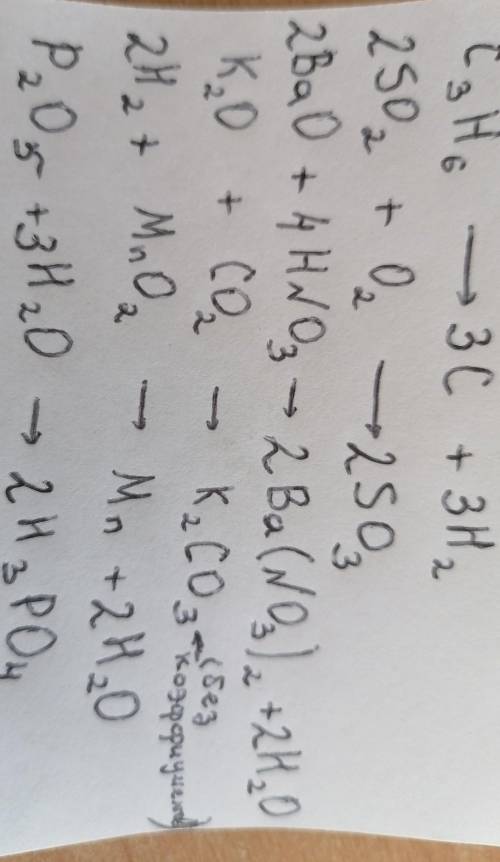 C₃H₆ → 3C + 3H₂
2SO₂ + O₂ → 2SO₃
2BaO + 4HNO₃ → 2Ba(NO₃)₂ + 2H₂O
K₂O + CO₂ → K₂CO₃ ← (без коэффициента)
2H₂ + MnO₂ → Mn + 2H₂O
P₂O₅ + 3H₂O → 2H₃PO₄